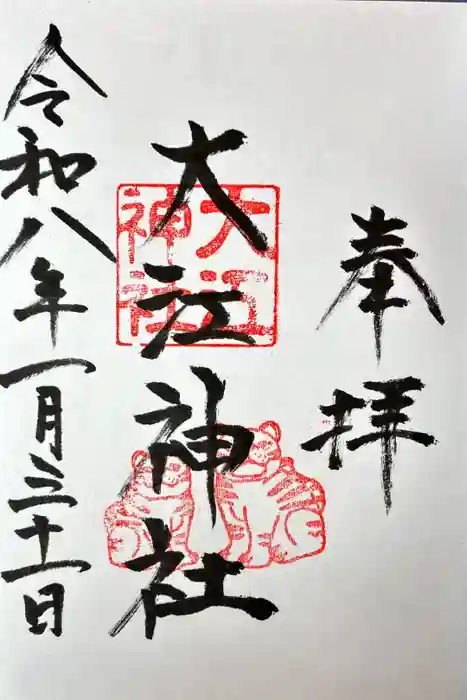 奉拝
大江神社
大江
神社
令和八年一月三十一日